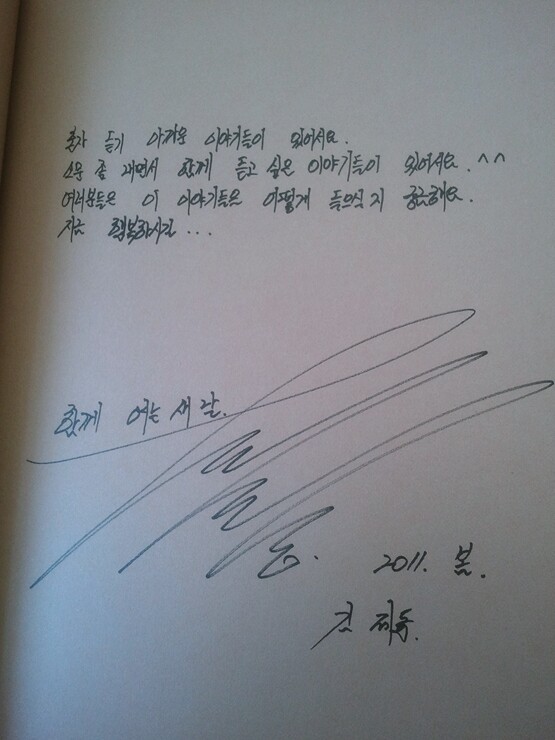 혼자 듣기 아까운 이야기들이 있어서요.
소문 좀 내면서 함께 듣고 싶은 이야기들이 있어서요. ^^
여러분들은 이 이야기들은 어떻게 들으실지 궁금해요.
지금 행복하시길...
함께 여는 새 날.
2011. 봄.
김 제동.